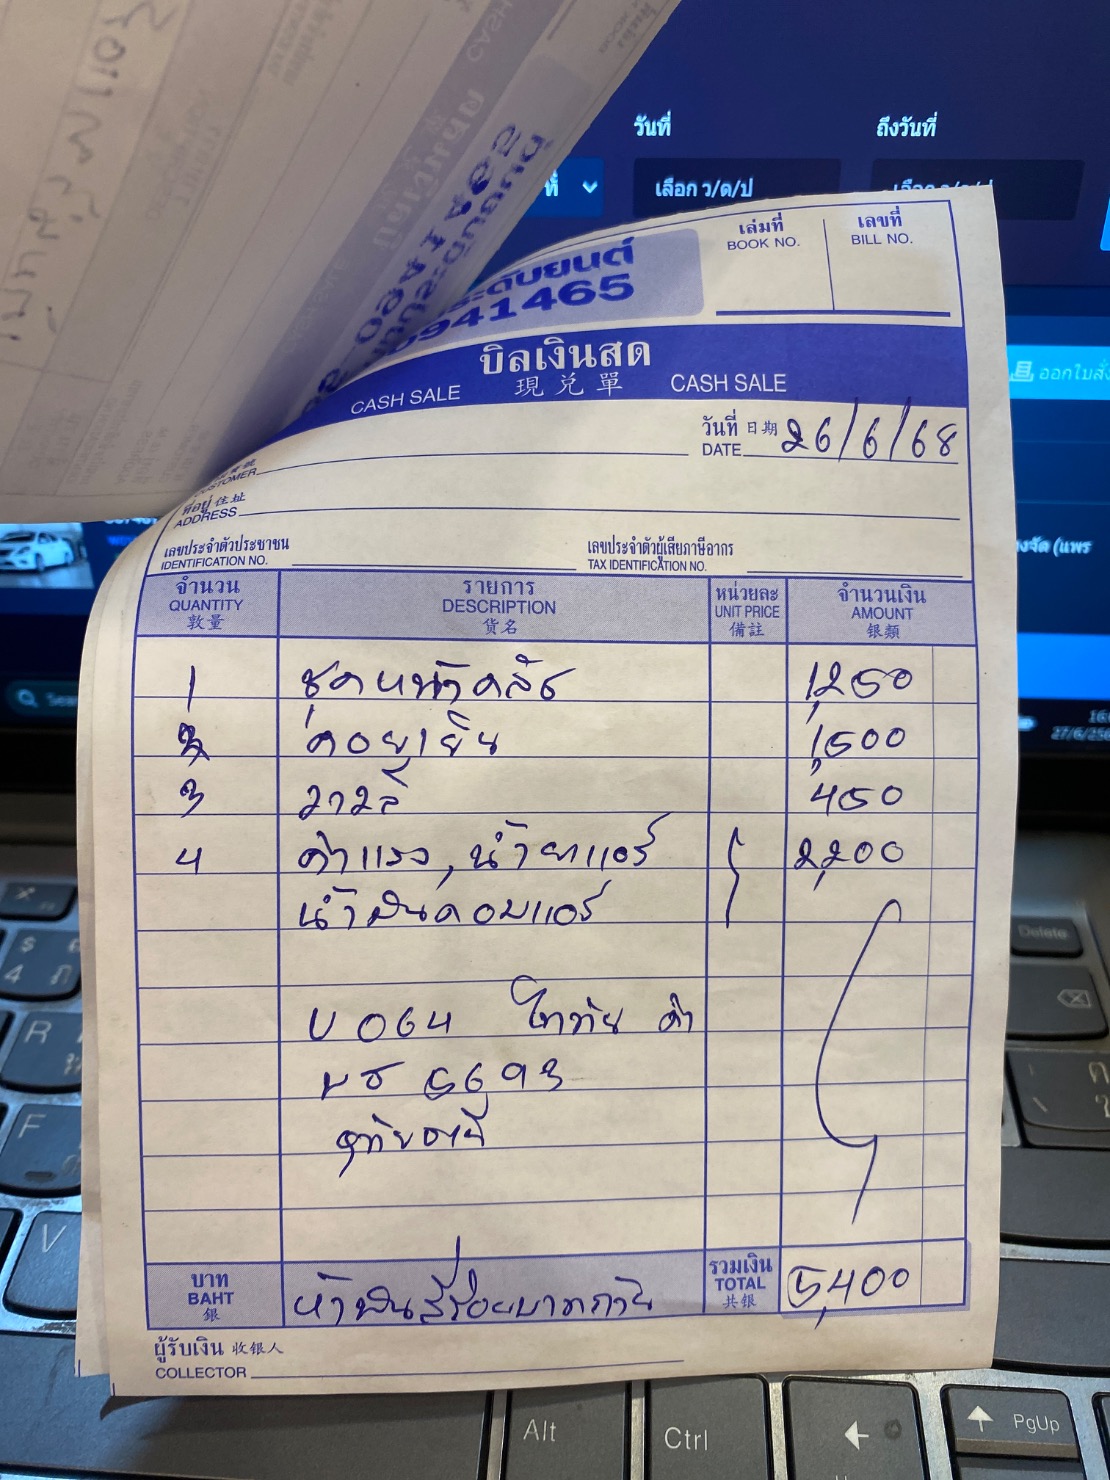 วันที่ ถึงวันที่
เลือก ว/ด/ป
เล่มที่ เลขที่
BOOK NO. BILL NO.
ระดับยนต์
0941465
บิลเงินสด
CASH SALE 現兌單 CASH SALE
วันที่ 日期
DATE 26/6/68
CUSTOMER
ที่อยู่ 住址
ADDRESS
เลขประจำตัวประชาชน เลขประจำตัวผู้เสียภาษีอากร
IDENTIFICATION NO. TAX IDENTIFICATION NO.
จำนวน รายการ หน่วยละ จำนวนเงิน
QUANTITY DESCRIPTION UNIT PRICE AMOUNT
敦量 货名 備註 银類
1 ชุดหน้าคลัช 1,250
2 คอยเย็น 1,500
3 วาวล์ 450
4 ค่าแรง, น้ำยาแอร์ 2,200
น้ำมันคอมแอร์
U 064 ดำ
5693
อุทัยธานี
บาท ห้าพันสี่ร้อยบาทถ้วน รวมเงิน 5,400
BAHT TOTAL
銀 共银
ผู้รับเงิน 收银人
COLLECTOR
ออกใบสั่ง
27/6/256
Delete
$
4
R
F
V
Alt
Ctrl
PgUp